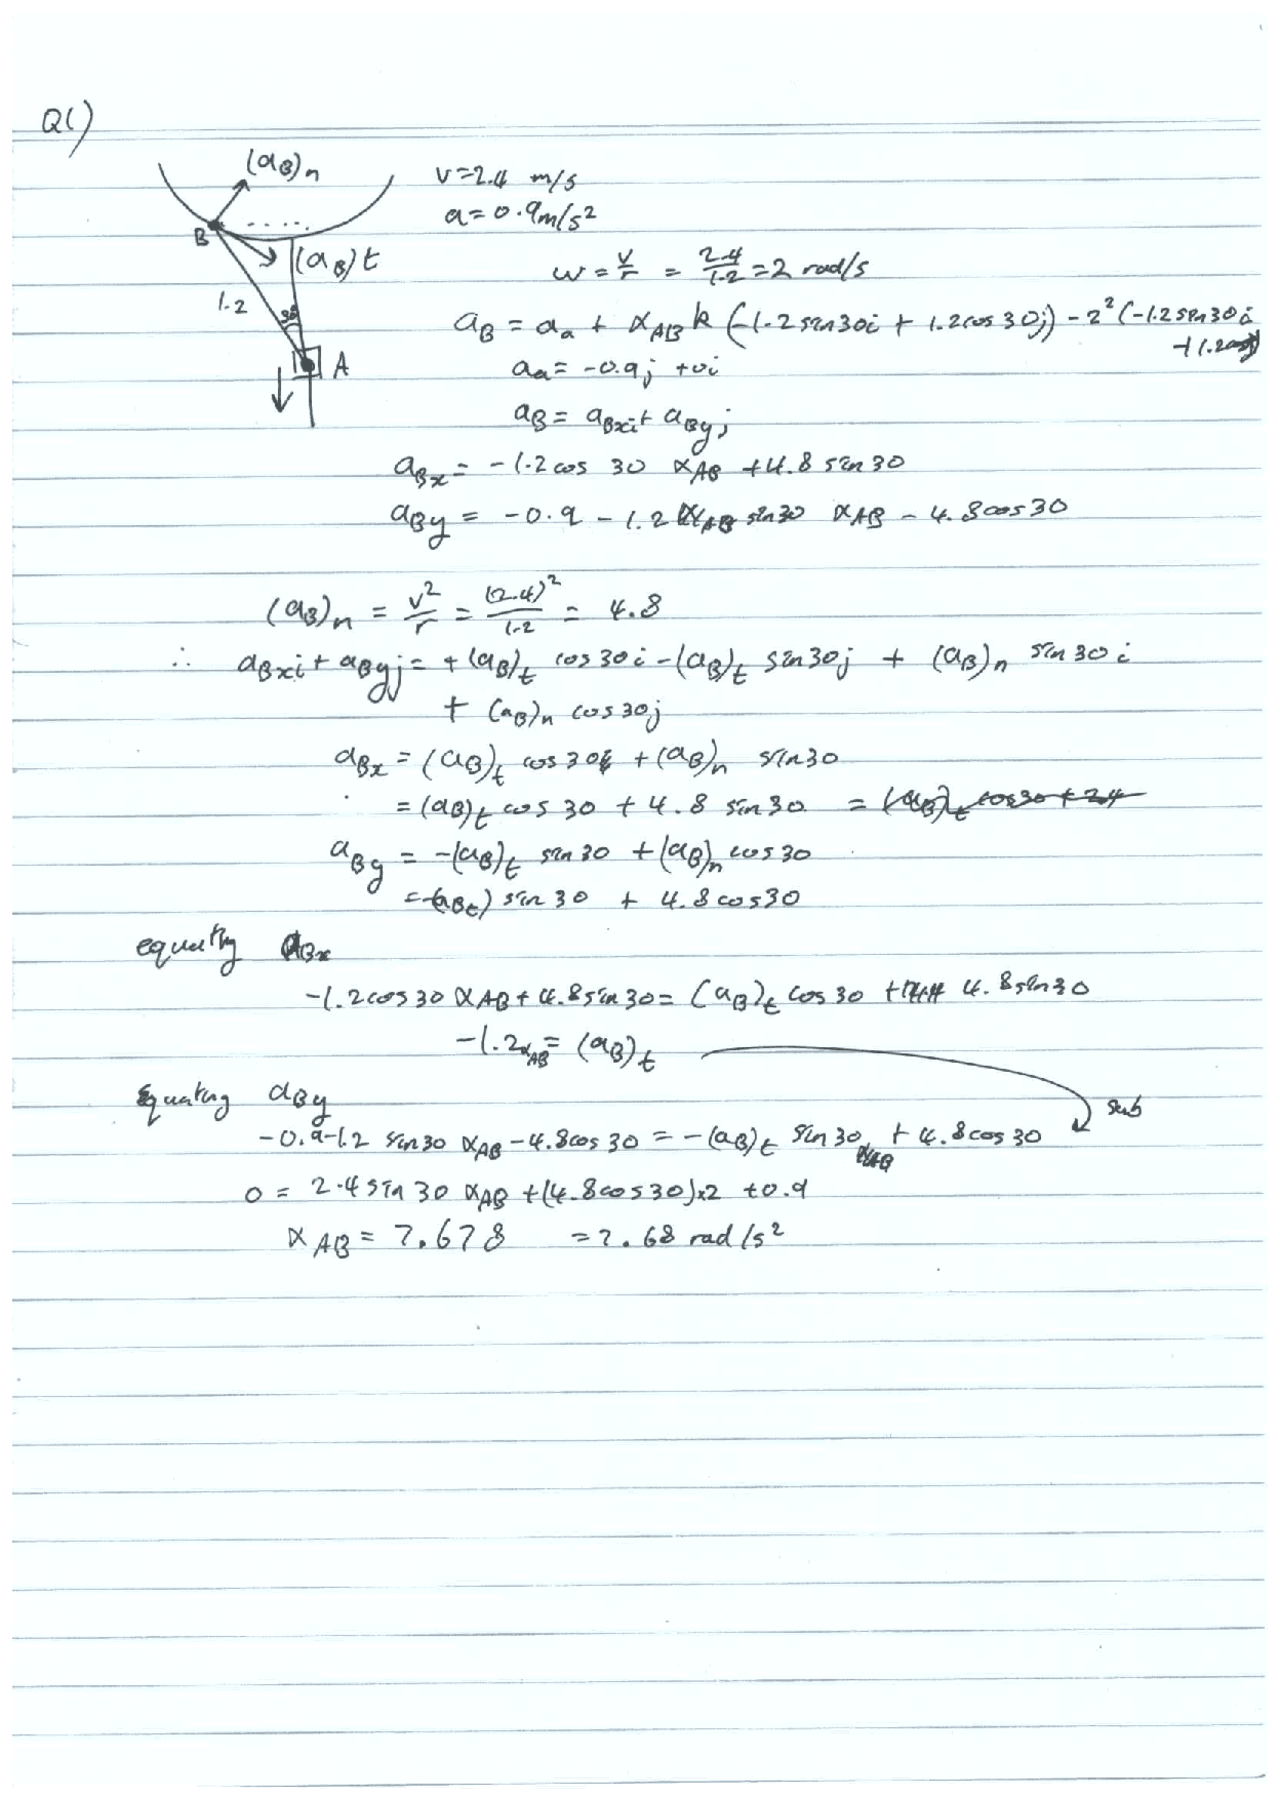 Q1)
(aB)n
B
....
(aB)t
1.2
30
A
v=2.4 m/s
a=0.9m/s²
ω = v/r = 2.4/1.2 = 2 rad/s
aB = aa + αAB k (-1.2sin30i + 1.2cos30j) - 2² (-1.2sin30i
aa = -0.9j + 0i
aB = aBxi + aByj
aBx = -1.2cos 30 αAB + 4.8 sin30
aBy = -0.9 - 1.2 sin30 αAB - 4.8cos30
(aB)n = v²/r = (2.4)²/1.2 = 4.8
∴ aBxi + aByj = +(aB)t cos30i - (aB)t sin30j + (aB)n sin30i
+ (aB)n cos30j
aBx = (aB)t cos30 + (aB)n sin30
= (aB)t cos 30 + 4.8 sin30 = (aB)t cos30 + 2.4
aBy = -(aB)t sin30 + (aB)n cos30
= -(aBt) sin30 + 4.8cos30
equating aBx
-1.2cos30 αAB + 4.8sin30 = (aB)t cos30 + 4.8sin30
-1.2αAB = (aB)t
sub
Equating aBy
-0.9-1.2 sin30 αAB - 4.8cos30 = -(aB)t sin30 + 4.8cos30
0 = 2.4sin30 αAB + (4.8cos30)x2 + 0.9
αAB = 7.678 = 7.68 rad/s²